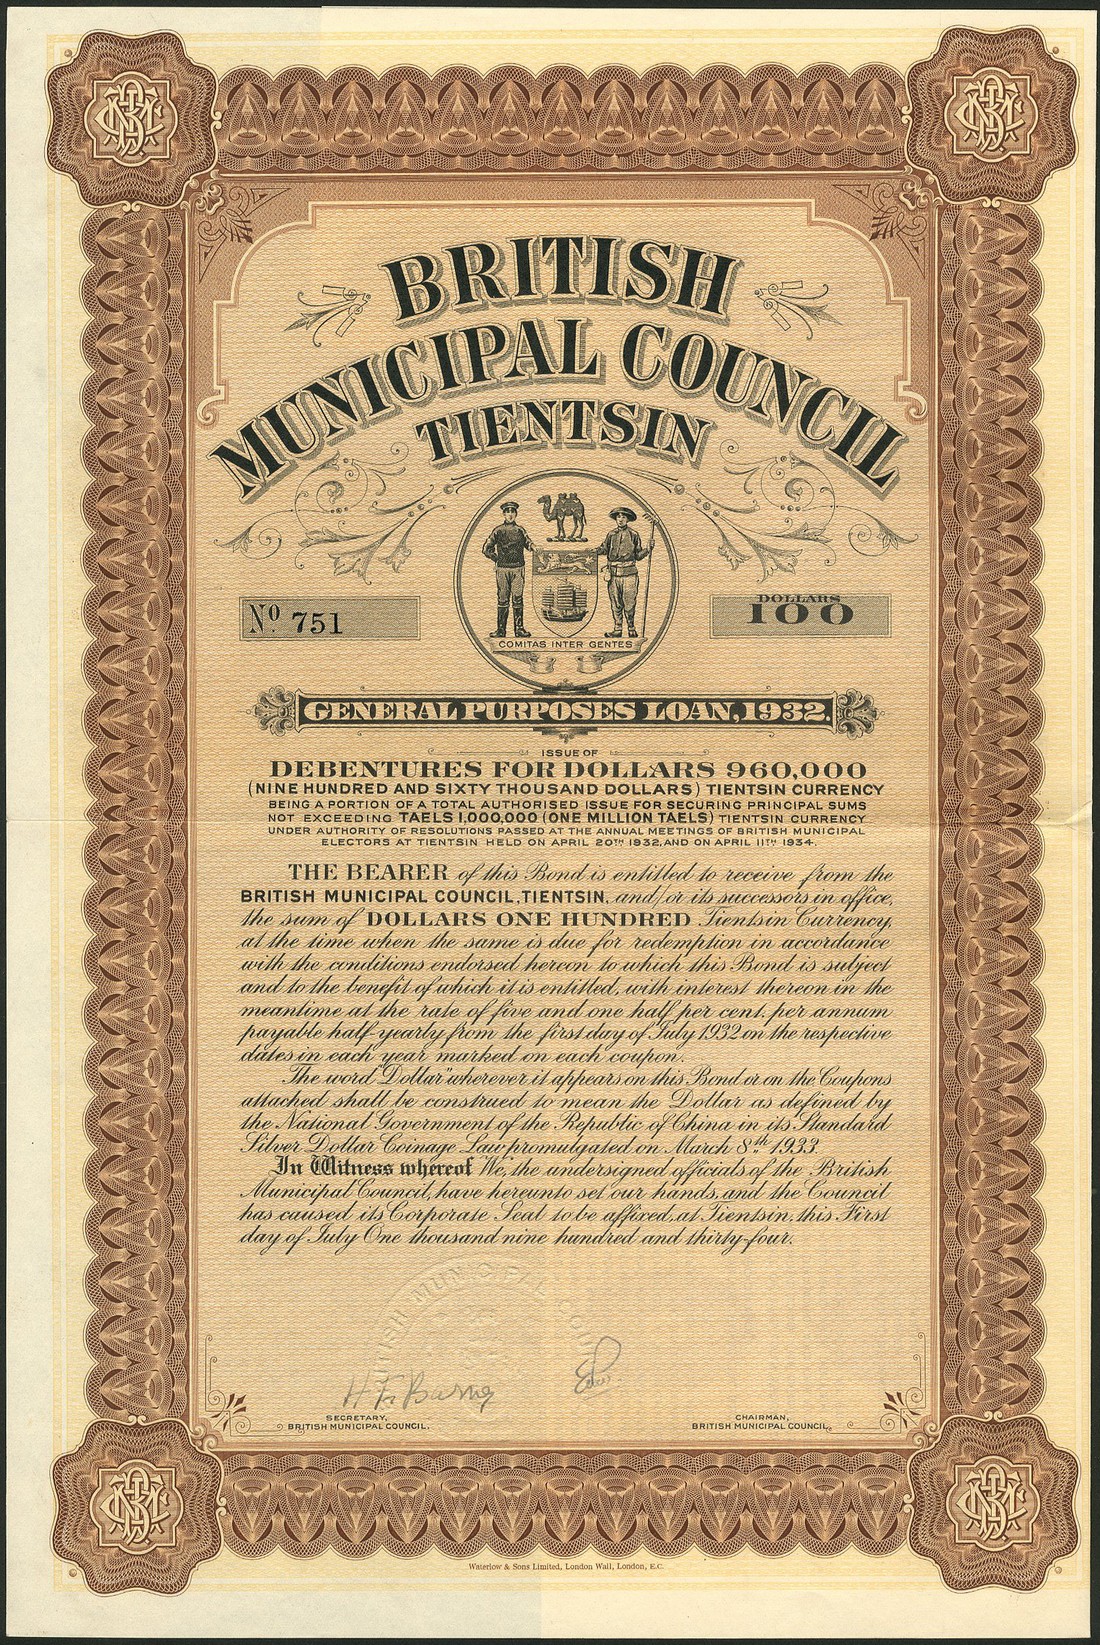 BRITISH
MUNICIPAL COUNCIL
TIENTSIN
No. 751
DOLLARS
100
COMITAS INTER GENTES
GENERAL PURPOSES LOAN, 1932.
ISSUE OF
DEBENTURES FOR DOLLARS 960,000
(NINE HUNDRED AND SIXTY THOUSAND DOLLARS) TIENTSIN CURRENCY
BEING A PORTION OF A TOTAL AUTHORISED ISSUE FOR SECURING PRINCIPAL SUMS
NOT EXCEEDING TAELS 1,000,000 (ONE MILLION TAELS) TIENTSIN CURRENCY
UNDER AUTHORITY OF RESOLUTIONS PASSED AT THE ANNUAL MEETINGS OF BRITISH MUNICIPAL
ELECTORS AT TIENTSIN HELD ON APRIL 20TH 1932, AND ON APRIL 11TH 1934.
THE BEARER of this Bond is entitled to receive from the
BRITISH MUNICIPAL COUNCIL, TIENTSIN, and/or its successors in office,
the sum of DOLLARS ONE HUNDRED Tientsin Currency,
at the time when the same is due for redemption in accordance
with the conditions endorsed hereon to which this Bond is subject
and to the benefit of which it is entitled, with interest thereon in the
meantime at the rate of five and one half per cent. per annum
payable half-yearly from the first day of July 1932 on the respective
dates in each year marked on each coupon.
The word "Dollar" wherever it appears on this Bond or on the Coupons
attached shall be construed to mean the Dollar as defined by
the National Government of the Republic of China in its Standard
Silver Dollar Coinage Law promulgated on March 8th 1933.
In Witness whereof We, the undersigned officials of the British
Municipal Council, have hereunto set our hands, and the Council
has caused its Corporate Seal to be affixed, at Tientsin, this First
day of July One thousand nine hundred and thirty-four.
BRITISH MUNICIPAL COUN
H. F. Barnes
SECRETARY,
BRITISH MUNICIPAL COUNCIL.
CHAIRMAN,
BRITISH MUNICIPAL COUNCIL.
Waterlow & Sons Limited, London Wall, London, E.C.